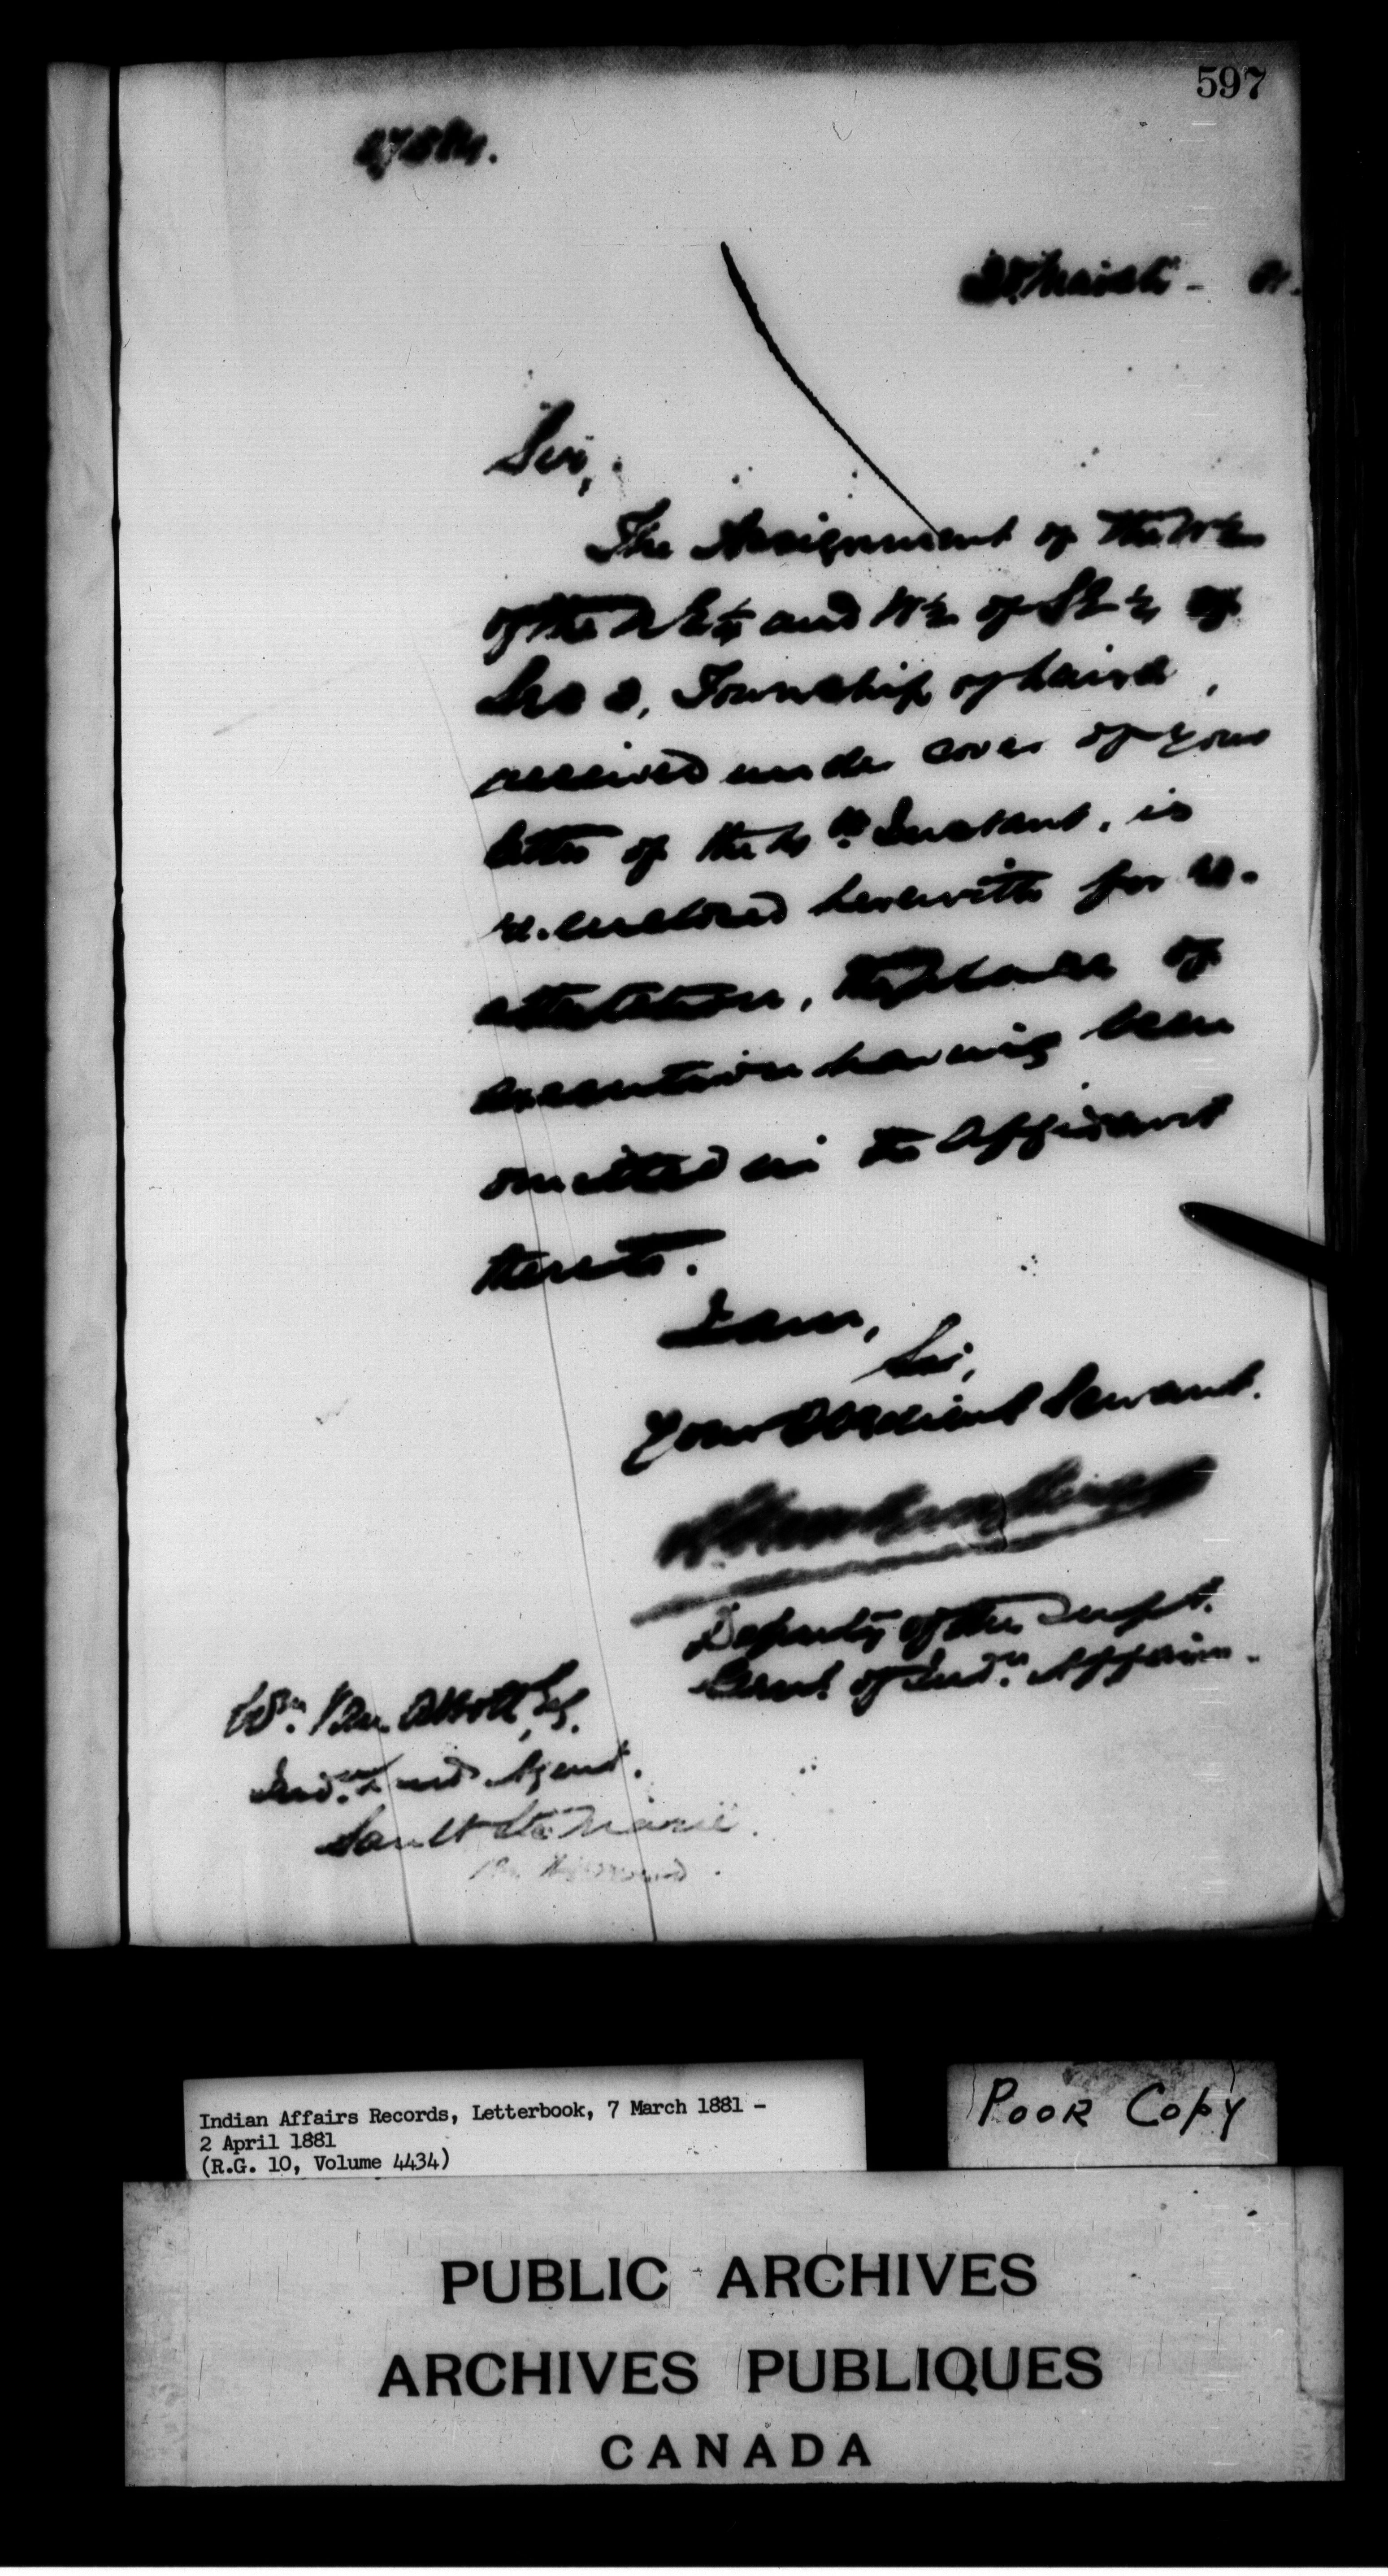 597
March - 81.
Sir,
The Assignment of the W½
of the N E ¼ and W½ of SE ¼ of
Sec 8, Township of Laird,
received under cover of your
letter of the Instant, is
re-enclosed herewith for re-
attestation, the place of
execution having been
omitted in the Affidavit
thereto.
I am,
Sir,
Your Obedient Servant.
Deputy of the Supt.
Genl. of Indn Affairs.
Wm. Van Abbott, Esq.
Indn. Land Agent.
Sault Ste Marie.
Indian Affairs Records, Letterbook, 7 March 1881 -
2 April 1881
(R.G. 10, Volume 4434)
POOR COPY
PUBLIC ARCHIVES
ARCHIVES PUBLIQUES
CANADA